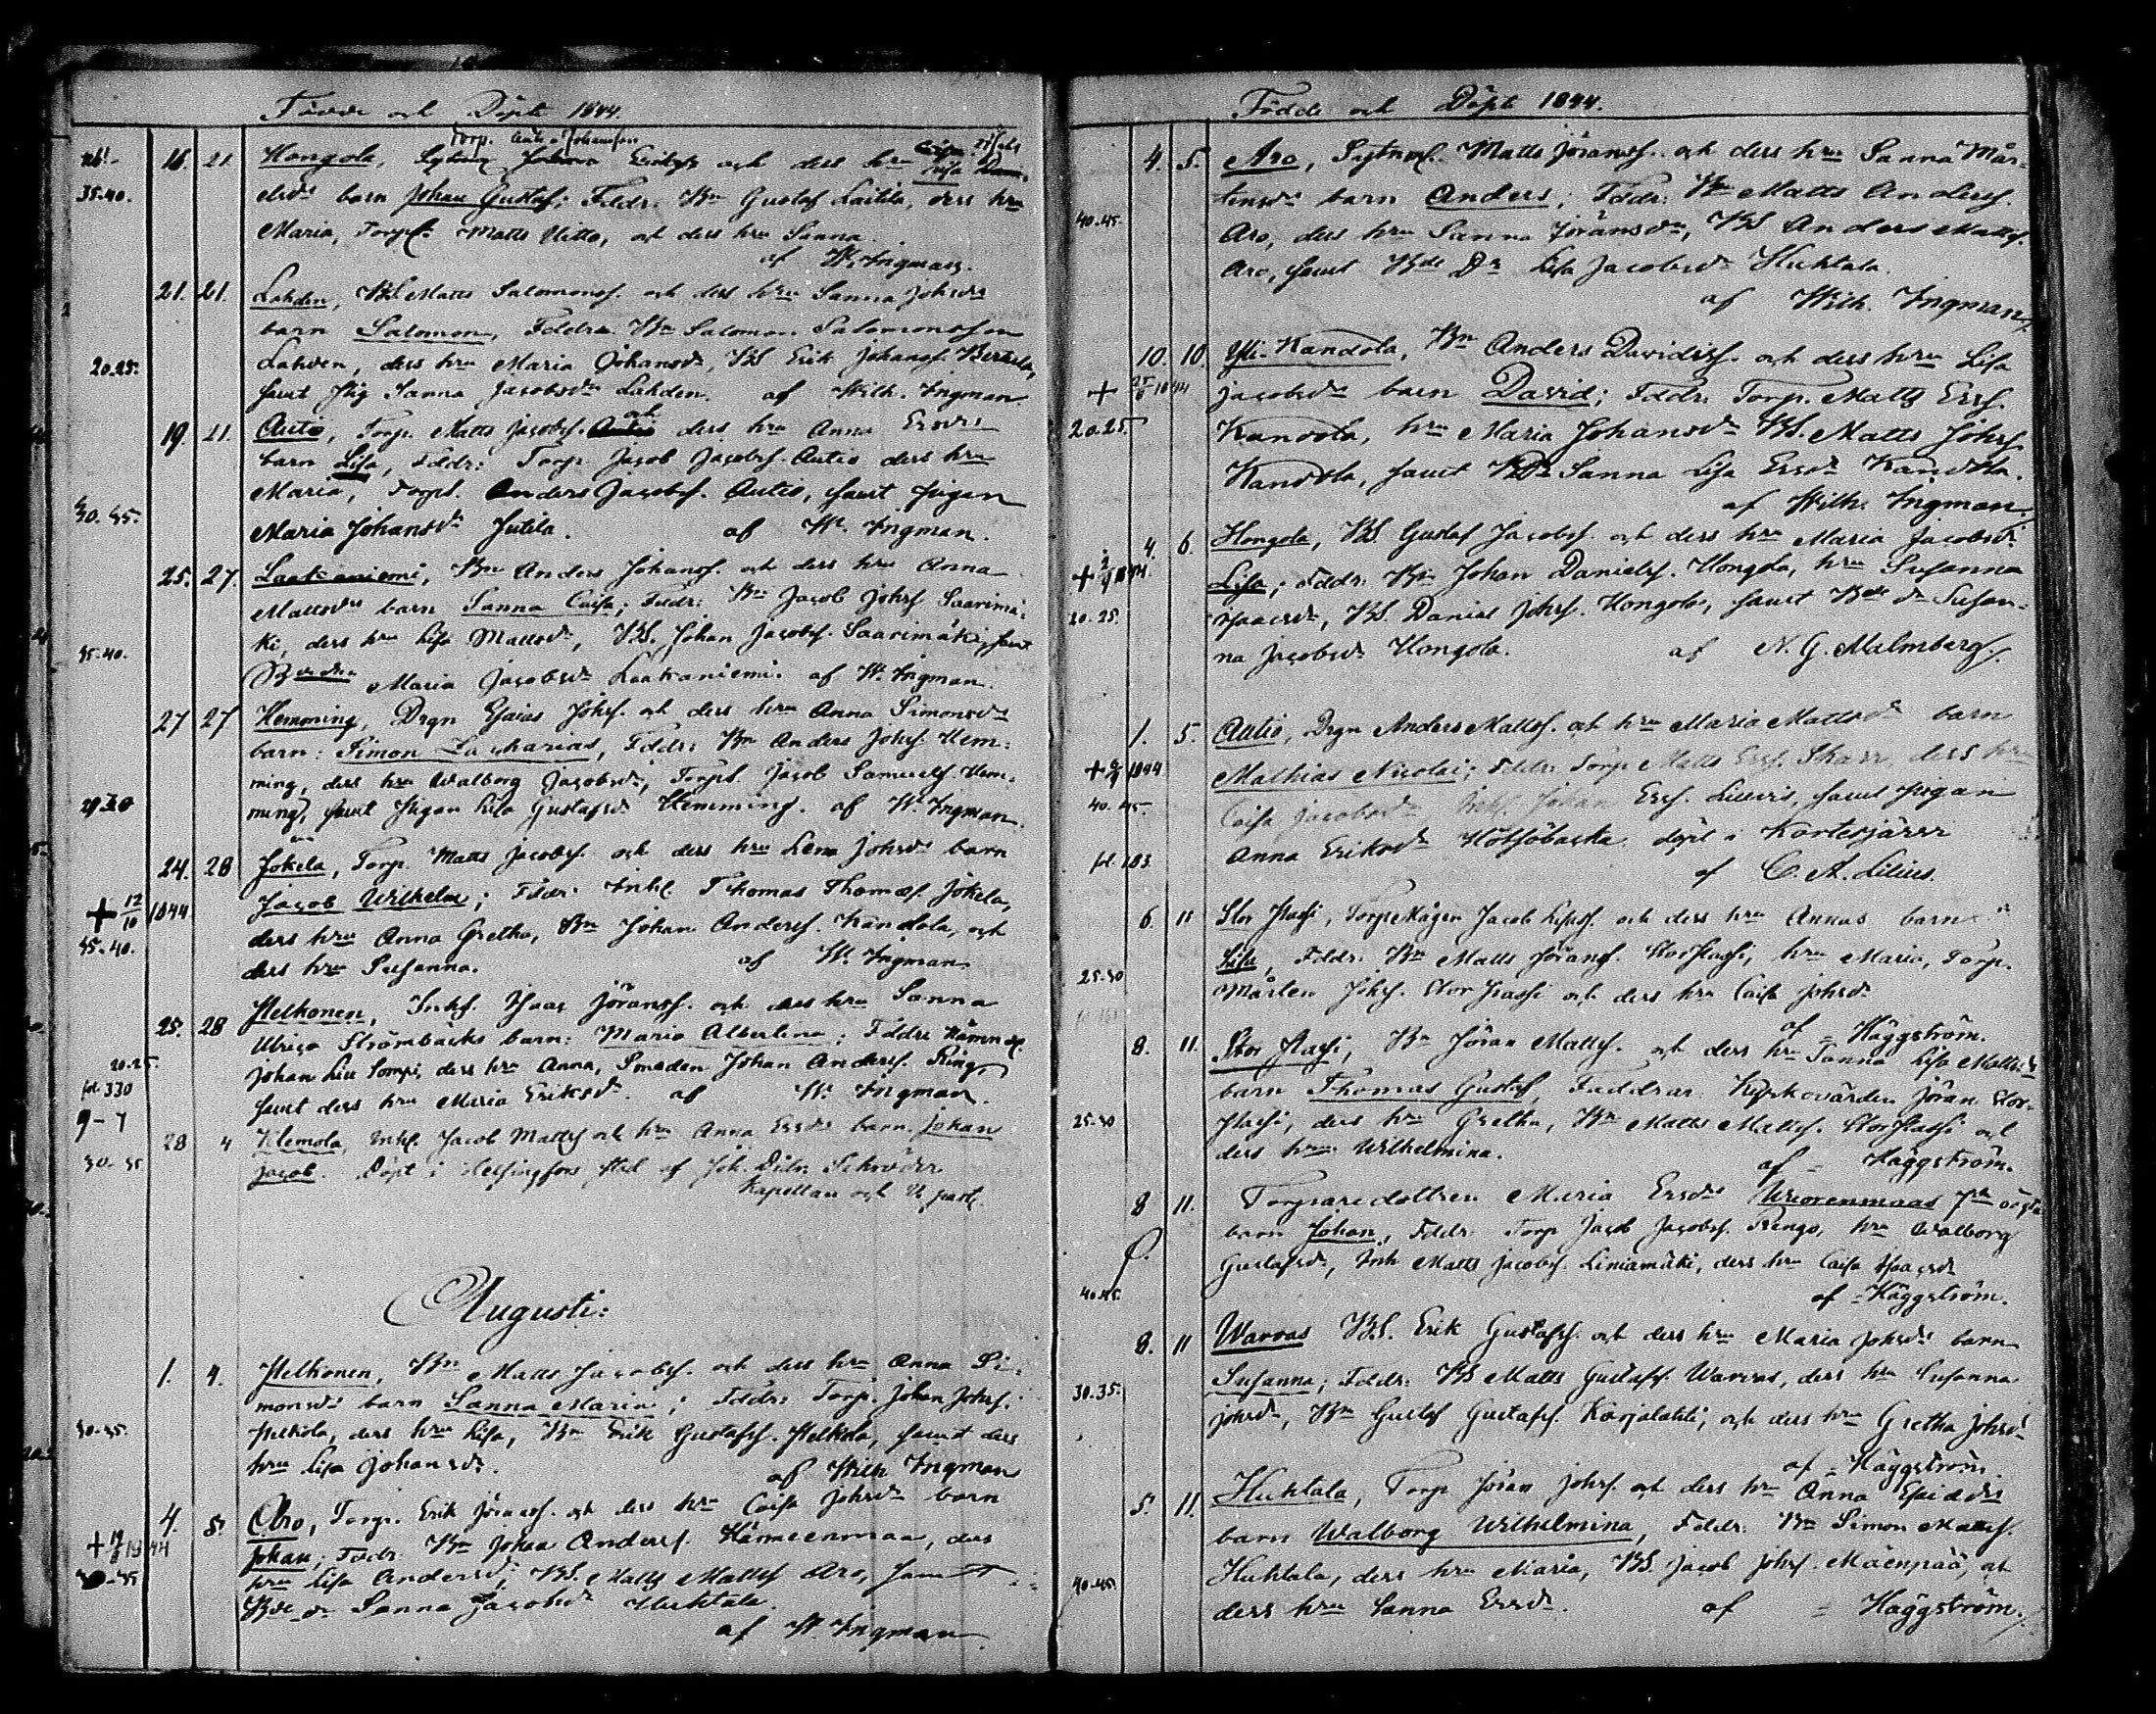 Födde och Döpte 1844.
Torp. Johansson
16. 21. Hongola, och dess hru Lisa
35-40. barn Johan Gustaf; Fddr. Bn Gustaf Laitila, dess hru
Maria, Torps. Matts Uitto, och dess hru Sanna.
af W. Ingman.
21. 21. Lahden, BS. Matts Salomonsf. och dess hru Sanna Johsdr
barn Salomon, Fddra Bn Salomon Salomonsson
20.25. Lahden, dess hru Maria Johansdr, BS Erik Johansf. Berttula,
samt Pig Sanna Jacobsdr Lahden. af Wilh. Ingman.
19. 21. Autio, Torp. Matts Jacobsf. och dess hru Anna Ersdr
barn Lisa, Fddr: Torp. Jacob Jacobsf. Autio dess hru
Maria, Torps. Anders Jacobsf. Autio, samt pigan
30. 35. Maria Johansdr Jutila. af W. Ingman.
25. 27. Laakaniemi, Bn Anders Johansf. och dess hru Anna
Mattsdr barn Sanna Caisa; Fddr: Bn Jacob Johsf Saarimä-
ki, dess hru Lisa Mattsdr, BS. Johan Jacobsf. Saarimäki, samt
35-40. Bdedn Maria Jacobsdr Laakaniemi. af W. Ingman.
27 27 Hemming, Drgn Esaias Johsf. och dess hru Anna Simonsdr
barn: Simon Zacharias, Fddr: Bn Anders Johsf. Hem-
ming, dess hru Walborg Jacobsdr, Torps. Jacob Samuelsf. Hem-
ming, samt Pigan Lisa Gustafsdr Hemming. af W. Ingman.
24. 28 Jokela, Torp. Matts Jacobsf. och dess hru Lena Johsdr barn
+ 12/10 1844. Jacob Wilhelm; Fddr: Inhs. Thomas Thomasf. Jokela,
35-40. dess hru Anna Gretha, Bn Johan Andersf. Kandola, och
dess hru Susanna. af W. Ingman.
25. 28 Pelkonen, Inhs. Isaac Jöransf. och dess hru Sanna
Ulrica Strömbäcks barn: Maria Albertina; Fddre
20.25. Johan Liu Sompi, dess hru Anna, Smeden Johan Andersf. Ring,
fol. 330 samt dess hru Maria Eriksdr. af W. Ingman.
28 4 Klemola, Inhs. Jacob Mattsf och hru Anna Ersdr barn Johan
30-35 Jacob. Döpt i Helsingfors stad af Joh. Schröder
Kapellan och V. past.
Augusti:
1. 4. Pelkonen, Bn Matts Jacobsf. och dess hru Anna Si-
monsdr barn Sanna Maria; Fddr: Torp. Johan Johsf.
30-35. Pelkola, dess hru Lisa, Bn Erik Gustafsf. Pelkola, samt dess
hru Lisa Johansdr. af Wilh Ingman
4. 5. Aro, Torp. Erik Jöransf. och dess hru Caisa Johsdr barn
+ 1844 Johan; Fddr: Bn Johan Andersf. Hämeenmaa, dess
30-35 hru Lisa Andersdr; BS. Matts Mattsf Aro, samt
Bdedr Sanna Jacobsdr Huhtala.
af W. Ingman.
Födde och Döpte 1844.
4. 5. Aro, Matts Jöransf. och dess hru Sanna Mår-
tensdr barn Anders; Fddr: Bn Matts Andersf.
40.45. Aro, dess hru Sanna Jöransdr, BS Anders Mattsf.
Aro, samt Bde Dr Lisa Jacobsdr Huhtala.
af Wilh. Ingman.
10. 10. Yli-Kandola, Bn Anders Davidssf. och dess hru Lisa
+ 1844 Jacobsdr barn David; Fddr. Torp. Matts Ersf.
20.25. Kandola, hru Maria Johansdr BS. Matts Johsf
Kandola, samt BDr Sanna Lisa Ersdr Kandola.
af Wilh. Ingman.
4. 6. Hongola, BS. Gustaf Jacobsf. och dess hru Maria Jacobsdr
+ 1844. Lisa; Fddr. Bn Johan Danielsf. Hongola, hru Susanna
20.25. Isaacsdr, BS. Daniel Johsf. Hongola, samt Bde dr Susan-
na Jacobsdr Hongola. af N. G. Malmberg.
1. 5. Autio, Drgn Anders Mattsf. och hru Maria Mattsdr barn
+ 1844 Mathias Nicolai; Fddr. Torp Matts Ersf. Skarr, dess hru
40.45. Caisa Jacobsdr Inhs. Johan Ersf. samt pigan
fol. 183. Anna Eriksdr döpt i Kortesjärvi
af C. A. Lilius.
6. 11 Stor Hassi, Torpe Mågen Jacob och dess hru Annas barn
Lisa, Fddr. Bn Matts Jöransf. Stor Hassi, hru Maria, Torp.
25.30 Mårten Johsf. Stor Hassi och dess hru Caisa Johsdr
af = Häggström.
8. 11. Stor Hassi, Bn Jöran Mattsf. och dess hru Sanna Lisa Mattsdr
barn Thomas Gustaf, Faddrar Kyrkovärden Jöran Stor-
25.30 Hassi, dess hru Gretha, Bn Matts Mattsf. Stor Hassi och
dess hru Wilhelmina. af = Häggström.
8 11. Torparedottren Maria Ersdr Wuorenmaas oägta
barn Johan, Fddr. Torp Jacob Jacobsf. Rengo, hru Walborg
Gustafsdr, Inh Matts Jacobsf. Liniamäki, dess hru Caisa Isaacsdr
40.45. af = Häggström.
8. 11 Warvas BS. Erik Gustafsf. och dess hru Maria Johsdr barn
30.35. Susanna; Fddr. BS Matts Gustafsf. Warvas, dess hru Susanna
Johsdr, Bn Gustaf Gustafsf. Karjalahti, och dess hru Gretha Johsdr
af = Häggström
5. 11. Huhtala, Torp Jöran Johsf. och dess hru Anna
barn Walborg Wilhelmina, Fddr. Bn Simon Mattsf.
40.45. Huhtala, dess hru Maria, BS. Jacob Johsf. Mäenpää, och
dess hru Sanna Ersdr. af = Häggström.